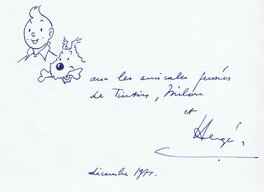 avec les amicales pensées
de Tintin, Milou
et
Hergé
décembre 1971.